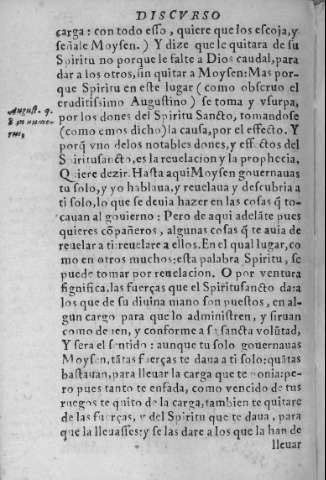 DISCVRSO
carga: con todo esso, quiere que los escoja, y
señale Moysen.) Y dize que le quitara de su
Spiritu no porque le falte a Dios caudal, para
dar a los otros, sin quitar a Moysen: Mas por-
que Spiritu en este lugar (como obseruo el
eruditissimo Augustino) se toma y vsurpa,
August. q.
por los dones del Spiritu Sancto, tomandose
(como emos dicho) la causa, por el effecto. Y
porq̃ vno delos notables dones, y eff.ctos del
Spiritusan̄cto, es la reuelacion y la prophecia,
Quiere dezir. Hasta aqui Moysen gouernauas
tu solo, y yo hablaua, y reuelaua y descubria a
ti solo, lo que se deuia hazer en las cosas q̃ to-
cauan al gouierno: Pero de aqui adelãte pues
quieres cõpañeros, algunas cosas q̃ te auia de
reuelar a ti: reuelare a ellos. En el qual lugar, co
mo en otros muchos: esta palabra Spiritu, se
puede tomar por reuelacion. O por ventura
significa, las fuerças que el Spiritusancto da: a
los que de su diuina mano son puestos, en al-
gun cargo para que lo administren, y siruan
como deuen, y conforme a su sancta volũtad,
Y sera el sentido: aunque tu solo gouernauas
Moysen, tãtas fuerças te daua a ti solo: quãtas
bastauan, para lleuar la carga que te ponia: pe-
ro pues tanto te enfada, como vencido de tus
ruegos te quito de la carga, tambien te quitare
de las fuerças, y del Spiritu que te daua, para
que la lleuasses: y se las dare a los que la han de
lleuar